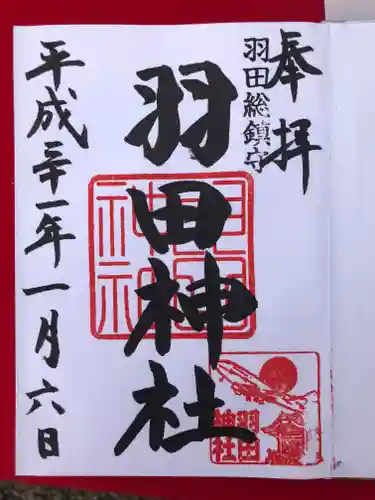 奉拝
羽田総鎮守
羽田神社
平成三十一年一月六日
羽田
神社